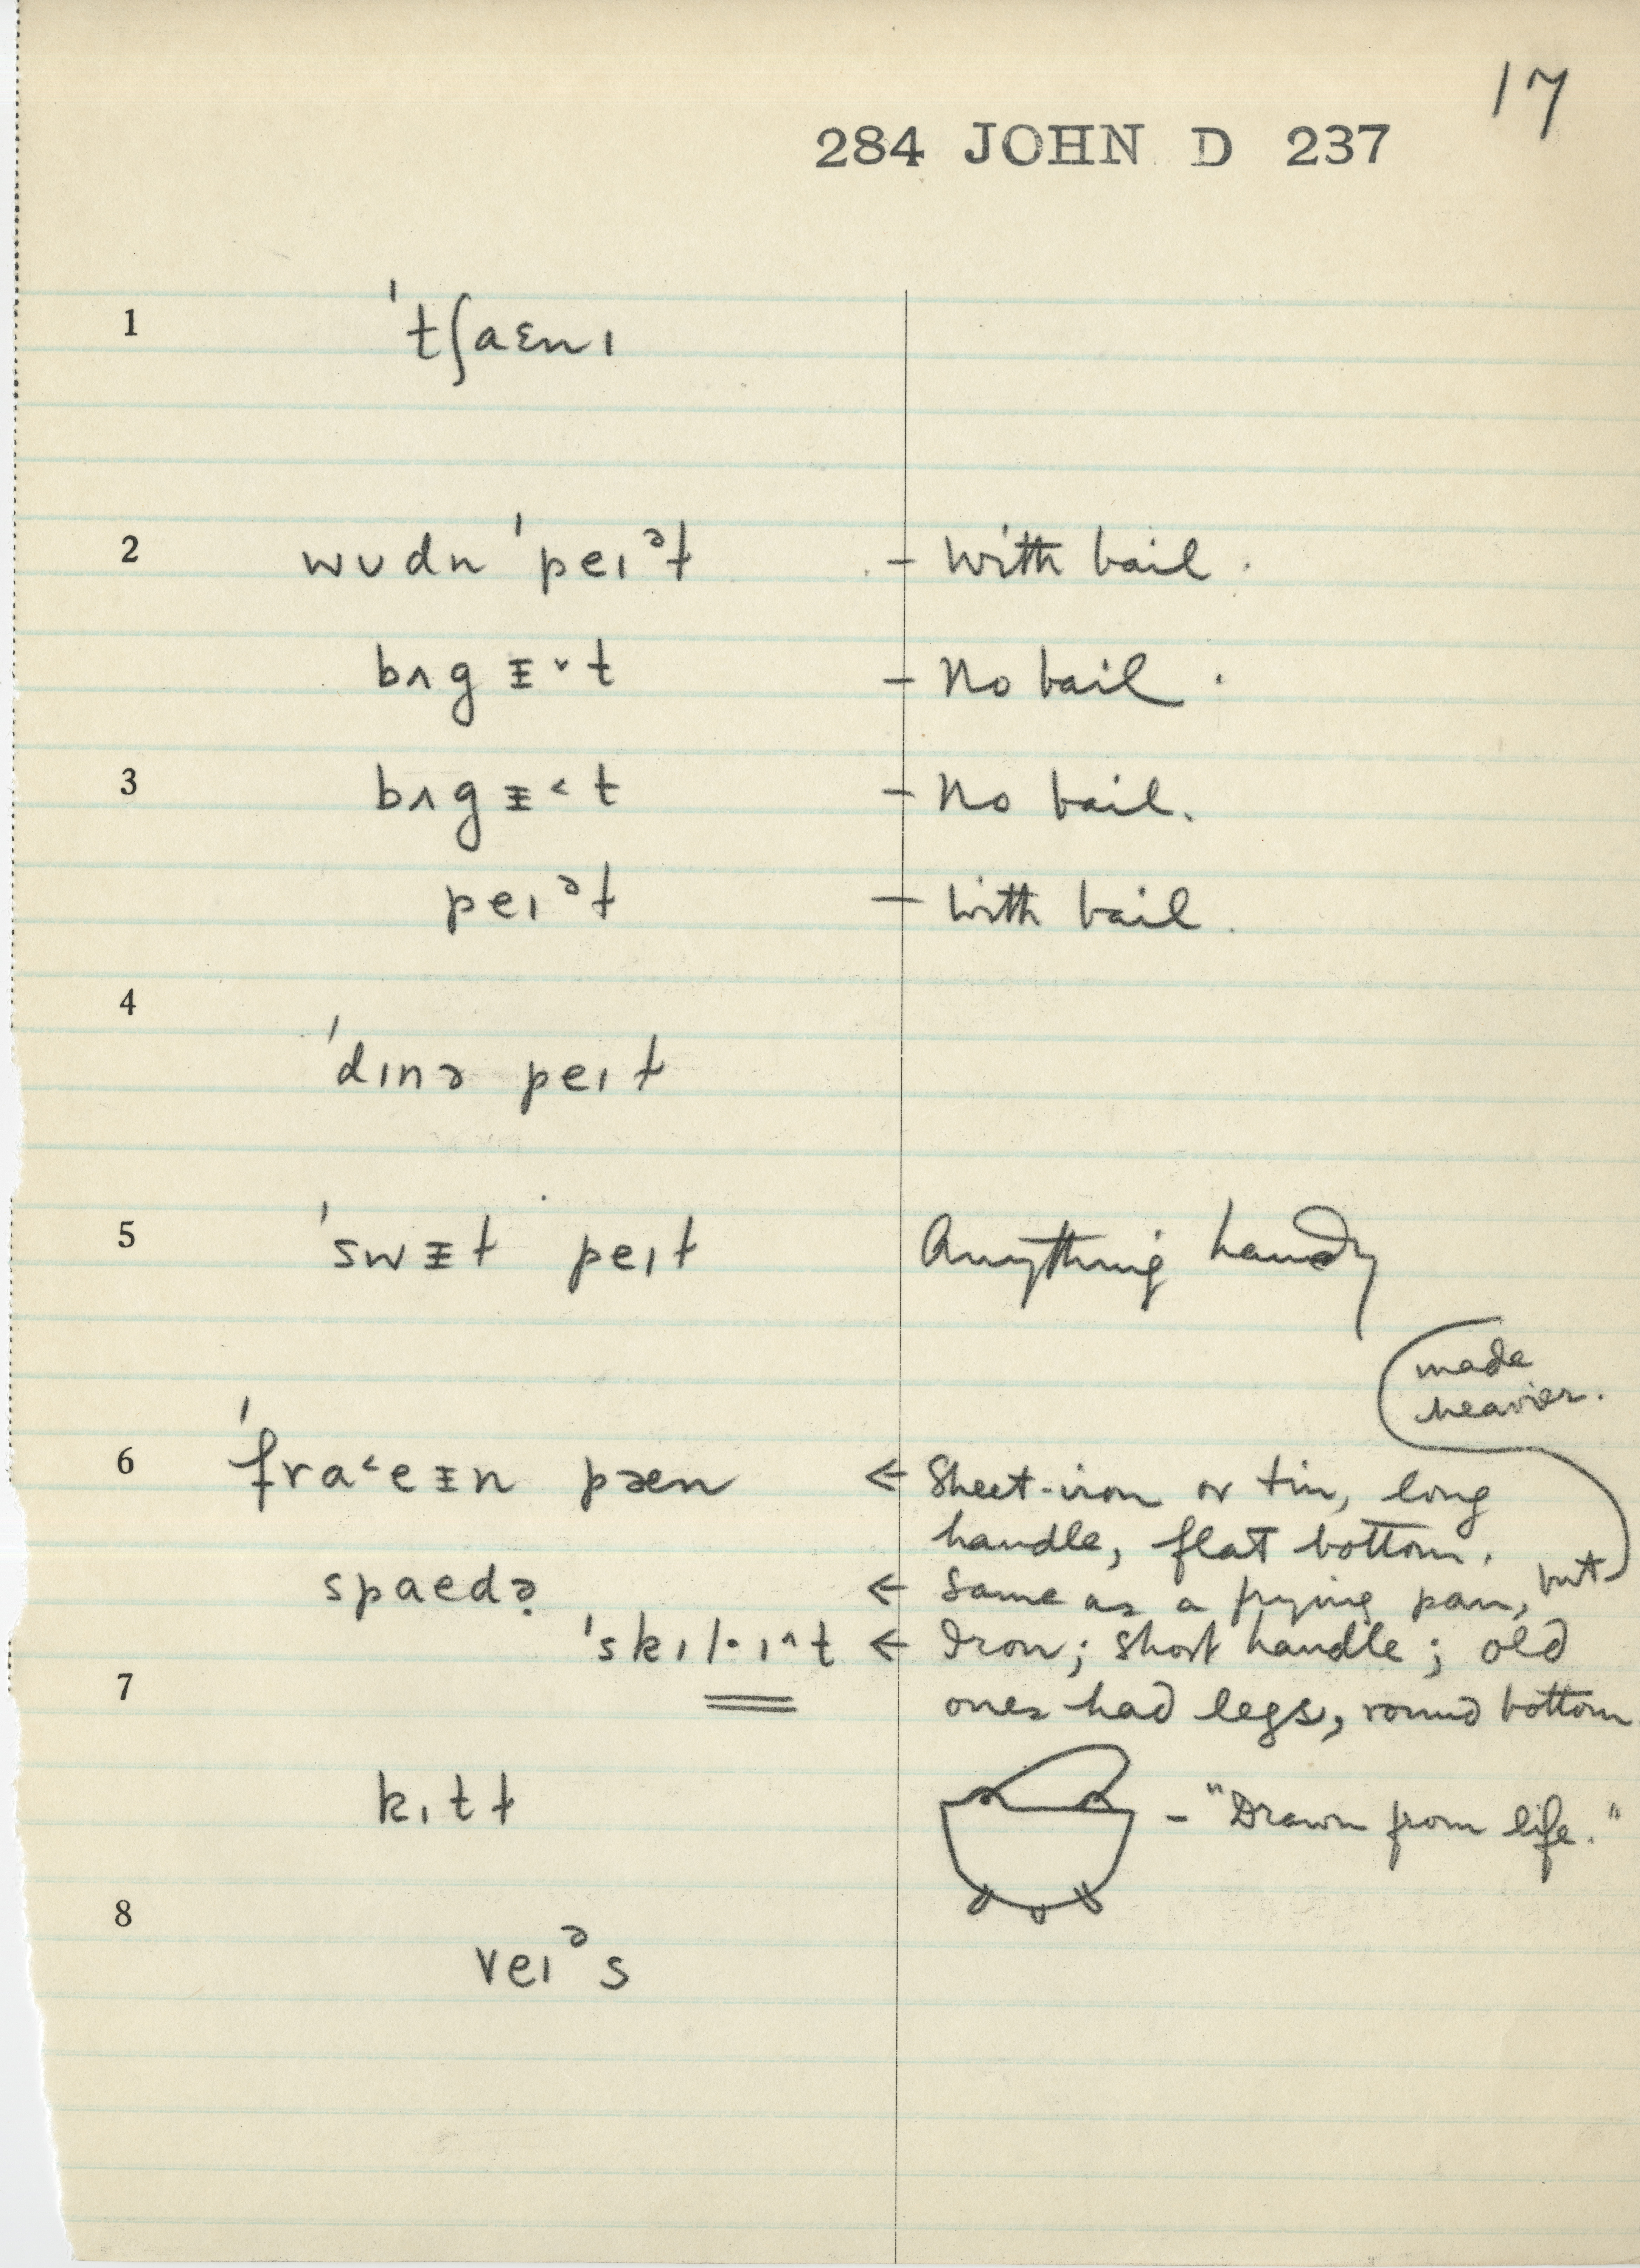 17
284 JOHN D 237
1 ˈtʃaɛnɪ
2 wʊdn ˈpeɪᵊɫ – With bail.
bʌgᵻ˅t – No bail.
3 bʌgᵻ˂t – No bail.
peɪᵊɫ – With bail.
4
ˈdɪnə peɪɫ
5 ˈswᵻɫ peɪɫ Anything handy
made
heavier.
6 ˈfra˂eᵻn pæn ← Sheet-iron or tin, long
handle, flat bottom.
spaedə̣ ← Same as a frying pan, but
ˈskɪl·ɪ^t ← Iron; short handle; old
7 ones had legs, round bottom
kɪtɫ – "Drawn from life."
8
veɪᵊs